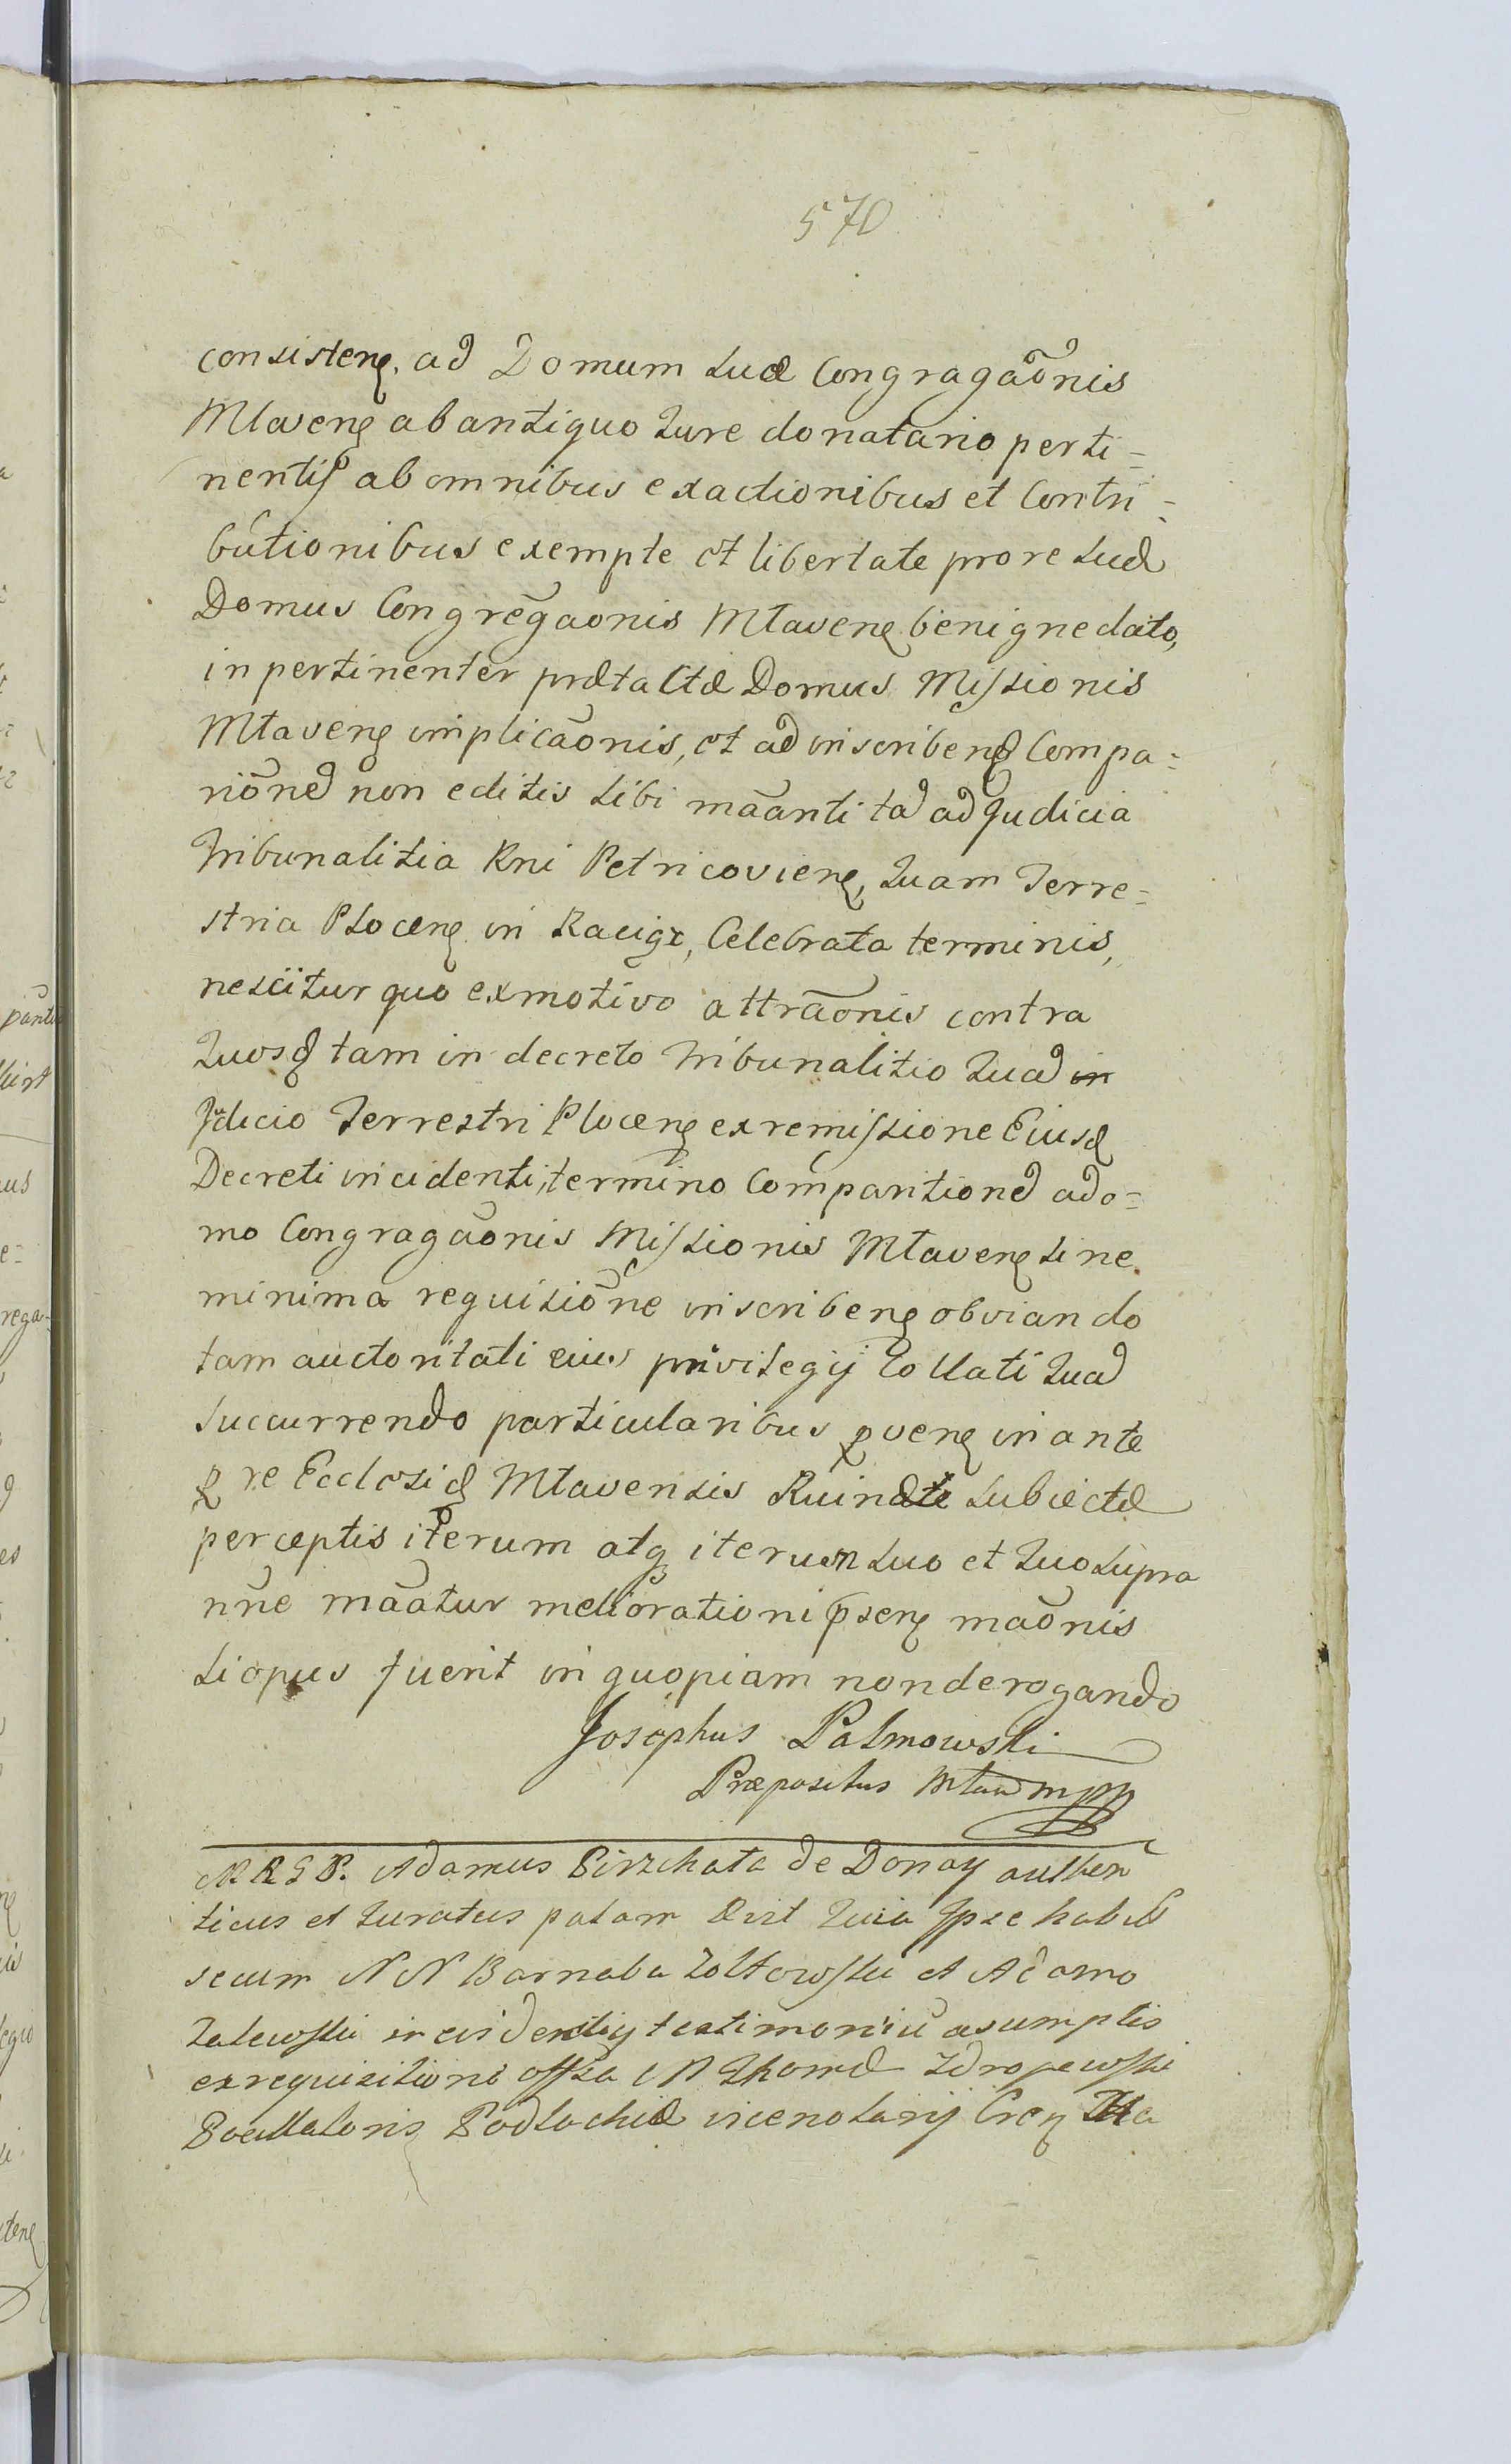 570
consisten. ad Domum suæ Congragaõnis
Mlaven ab antiquo Jure donatario perti=
nentis ab omnibus exactionibus et Contri=
butionibus exempte et libertate pro re suæ
Domus Congregaonis Mlaven benigne dato,
in pertinenter prætactæ Domus Missionis
Mlaven implicaõnis, et ad inscribend Compa=
rionẽ non editis sibi maãnti tã ad Judicia
Tribunalitia Rni Petricovien, quam Terre=
stria Plocen in Raciąż, Celebrata terminis,
nesciitur quo ex motivo attraõnis contra
quosq tam in decreto Tribunalitio quã in
Judicio Terrestri Plocen ex remissione Eiusd
Decreti incidenti, termino Comparitionẽ a do=
mo Congragaonis Missionis Mlaven sine
minima requisitione inscriben obviando
tam auctoritati eius privilegij Collati quã
succurrendo particularibus pven in ante
p re Ecclesiæ Mlavensis Ruinæ subiectæ
perceptis iterum atq iterum suo et quo supra
nne maãtur meliorationi psen maõnis
si opus fuerit in quopiam non derogando
Josephus Palmowski
Præpositus Mlav mpp
M. R. S. P. Adamus Pirzchała de Donay authen
ticus et Juratus palam quia Ipse habes
secum NN Barnaba Żołtowski et Adamo
Zalewski in evidentius testimoniũ asumptis
ex requisitione offsa M Thomæ
Podlachiæ vicenotarij Cren